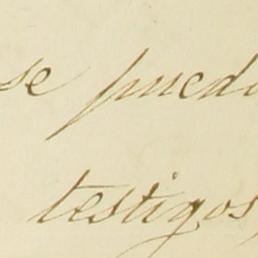 se pued
testigos,